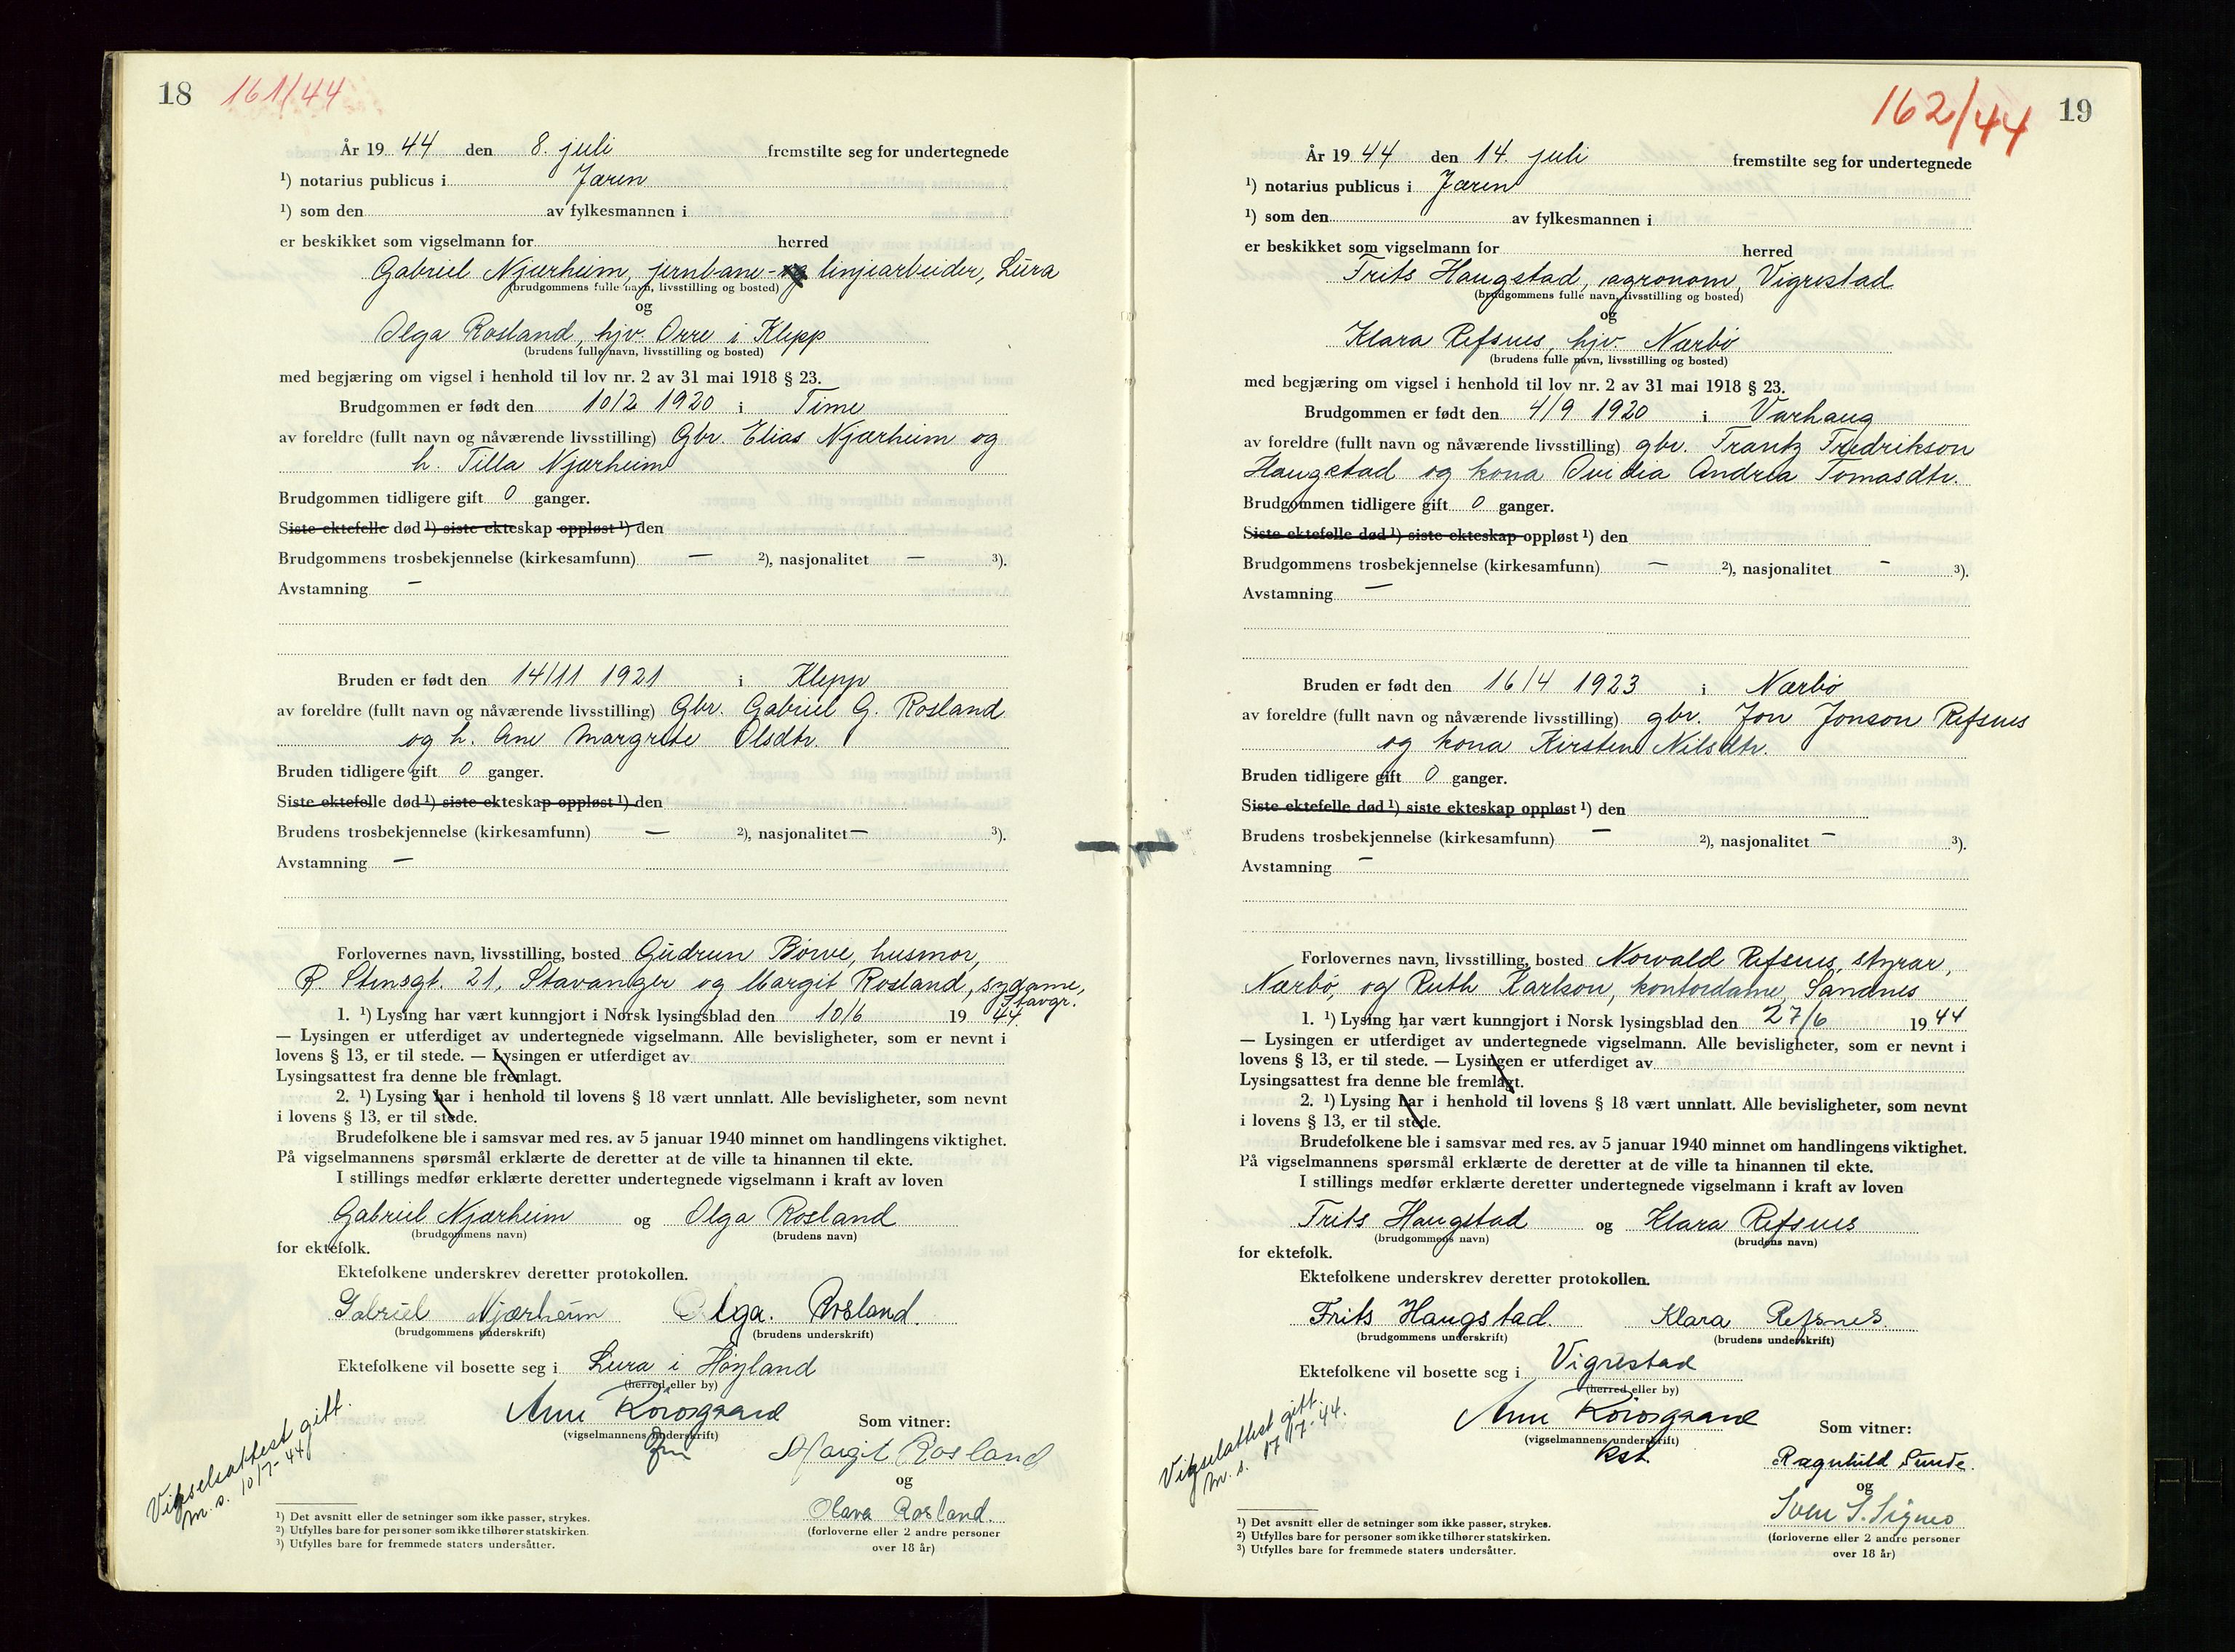 18 161/44
År 19 44 den 8. juli fremstilte seg for undertegnede
¹) notarius publicus i Jæren
¹) som den av fylkesmannen i
er beskikket som vigselmann for herred
Gabriel Njærheim, jernbane- linjearbeider, Lura
(brudgommens fulle navn, livsstilling og bosted)
og
Olga Rosland, hjv. Orre i Klepp
(brudens fulle navn, livsstilling og bosted)
med begjæring om vigsel i henhold til lov nr. 2 av 31 mai 1918 § 23.
Brudgommen er født den 10/2 1920 i Time
av foreldre (fullt navn og nåværende livsstilling) Gbr. Elias Njærheim og
h. Tilla Njærheim
Brudgommen tidligere gift 0 ganger.
Siste ektefelle død ¹) siste ekteskap oppløst ¹) den
Brudgommens trosbekjennelse (kirkesamfunn) — ²), nasjonalitet — ³).
Avstamning —
Bruden er født den 14/11 1921 i Klepp
av foreldre (fullt navn og nåværende livsstilling) Gbr. Gabriel G. Rosland
og h. Ane Margrete Olsdtr.
Bruden tidligere gift 0 ganger.
Siste ektefelle død ¹) siste ekteskap oppløst ¹) den
Brudens trosbekjennelse (kirkesamfunn) — ²), nasjonalitet — ³).
Avstamning —
Forlovernes navn, livsstilling, bosted Gudrun Børve, husmor,
R. Stensgt. 21, Stavanger og Margit Rosland, sydame,
Stavgr.
1. ¹) Lysing har vært kunngjort i Norsk lysingsblad den 10/6 19 44.
— Lysingen er utferdiget av undertegnede vigselmann. Alle bevisligheter, som er nevnt i
lovens § 13, er til stede. — Lysingen er utferdiget av
Lysingsattest fra denne ble fremlagt.
2. ¹) Lysing har i henhold til lovens § 18 vært unnlatt. Alle bevisligheter, som nevnt
i lovens § 13, er til stede.
Brudefolkene ble i samsvar med res. av 5 januar 1940 minnet om handlingens viktighet.
På vigselmannens spørsmål erklærte de deretter at de ville ta hinannen til ekte.
I stillings medfør erklærte deretter undertegnede vigselmann i kraft av loven
Gabriel Njærheim og Olga Rosland
(brudgommens navn) (brudens navn)
for ektefolk.
Ektefolkene underskrev deretter protokollen.
Gabriel Njærheim Olga. Rosland.
(brudgommens underskrift) (brudens underskrift)
Ektefolkene vil bosette seg i Lura i Høyland
(herred eller by)
Som vitner:
(vigselmannens underskrift)
Margit Rosland
og
Olava Rosland.
(forloverne eller 2 andre personer
over 18 år)
Vigselsattest gitt.
m. s. 10/7-44
¹) Det avsnitt eller de setninger som ikke passer, strykes.
²) Utfylles bare for personer som ikke tilhører statskirken.
³) Utfylles bare for fremmede staters undersåtter.
162/44 19
År 19 44 den 14. juli fremstilte seg for undertegnede
¹) notarius publicus i Jæren
¹) som den av fylkesmannen i
er beskikket som vigselmann for herred
Frits Haugstad, agronom, Vigrestad
(brudgommens fulle navn, livsstilling og bosted)
og
Klara Refsnes, hjv. Nærbø
(brudens fulle navn, livsstilling og bosted)
med begjæring om vigsel i henhold til lov nr. 2 av 31 mai 1918 § 23.
Brudgommen er født den 4/9 1920 i Varhaug
av foreldre (fullt navn og nåværende livsstilling) gbr. Frantz Fredrikson
Haugstad og kona Ovidia Andrea Tomasdtr.
Brudgommen tidligere gift 0 ganger.
Siste ektefelle død ¹) siste ekteskap oppløst ¹) den
Brudgommens trosbekjennelse (kirkesamfunn) — ²), nasjonalitet - ³).
Avstamning —
Bruden er født den 16/4 1923 i Nærbø
av foreldre (fullt navn og nåværende livsstilling) gbr. Jon Jonson Refsnes
og kona Kirsten Nilsdtr.
Bruden tidligere gift 0 ganger.
Siste ektefelle død ¹) siste ekteskap oppløst ¹) den
Brudens trosbekjennelse (kirkesamfunn) — ²), nasjonalitet — ³).
Avstamning —
Forlovernes navn, livsstilling, bosted Norvald Refsnes, styrar,
Nærbø, og Ruth Karlson, kontordame, Sandnes
1. ¹) Lysing har vært kunngjort i Norsk lysingsblad den 27/6 19 44
— Lysingen er utferdiget av undertegnede vigselmann. Alle bevisligheter, som er nevnt i
lovens § 13, er til stede. — Lysingen er utferdiget av
Lysingsattest fra denne ble fremlagt.
2. ¹) Lysing har i henhold til lovens § 18 vært unnlatt. Alle bevisligheter, som nevnt
i lovens § 13, er til stede.
Brudefolkene ble i samsvar med res. av 5 januar 1940 minnet om handlingens viktighet.
På vigselmannens spørsmål erklærte de deretter at de ville ta hinannen til ekte.
I stillings medfør erklærte deretter undertegnede vigselmann i kraft av loven
Frits Haugstad og Klara Refsnes
(brudgommens navn) (brudens navn)
for ektefolk.
Ektefolkene underskrev deretter protokollen.
Frits Haugstad. Klara Refsnes.
(brudgommens underskrift) (brudens underskrift)
Ektefolkene vil bosette seg i Vigrestad
(herred eller by)
Som vitner:
(vigselmannens underskrift)
kst.
Ragnhild Sunde.
og
(forloverne eller 2 andre personer
over 18 år)
Vigselattest gitt
m. s. 17/7-44.
¹) Det avsnitt eller de setninger som ikke passer, strykes.
²) Utfylles bare for personer som ikke tilhører statskirken.
³) Utfylles bare for fremmede staters undersåtter.